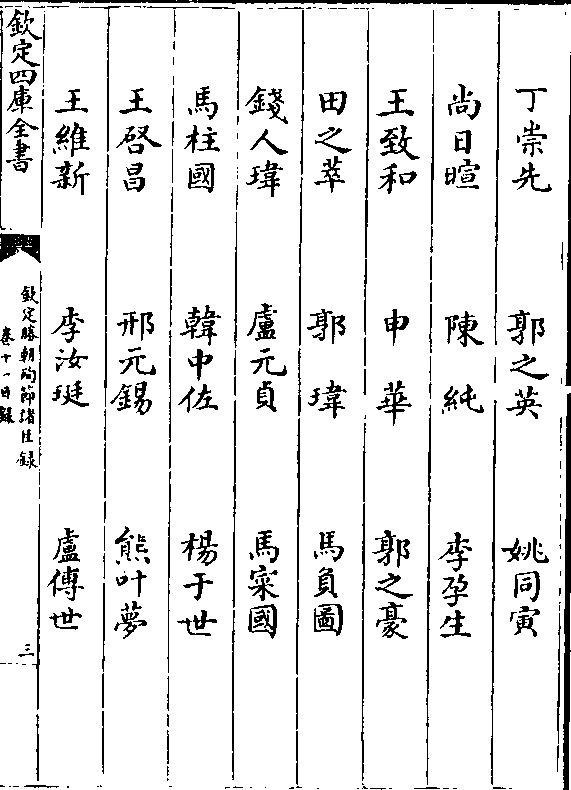 丁崇先 郭之英 姚同寅
尚日暄 陳純 李孕生
王致和 申華 郭之豪
田之萃 郭瑋 馬負圖
錢人瑋 盧元貞 馬寀國
馬柱國 韓中佐 楊于世
王啓昌 邢元錫 熊叶夢
王維新 李汝珽 盧傳世
欽定四庫全書
欽定勝朝殉節諸臣録
卷十一目録
三